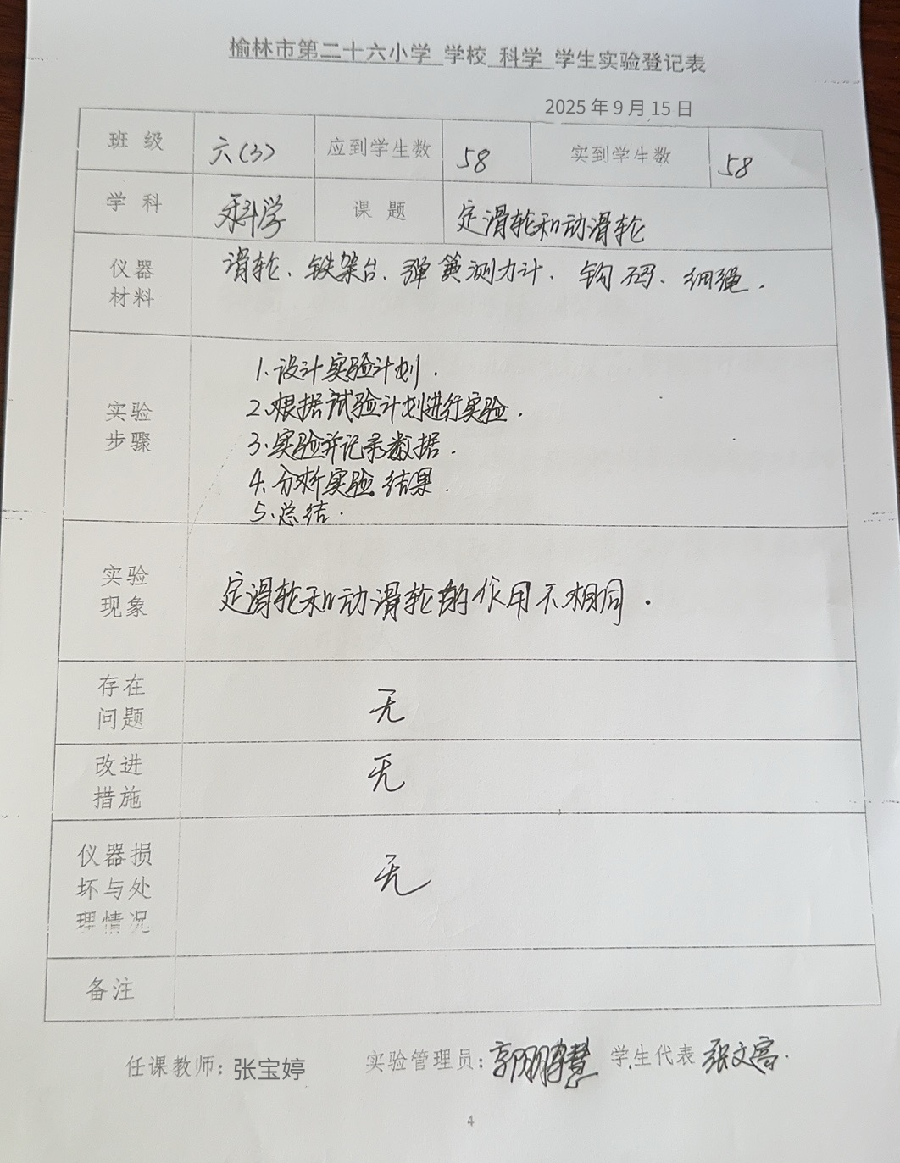 榆林市第二十六小学 学校 科学 学生实验登记表
2025年9月15日
班 级 六(3) 应到学生数 58 实到学生数 58
学 科 科学 课 题 定滑轮和动滑轮
仪器材料 滑轮、铁架台、弹簧测力计、钩码、细绳.
实验步骤
1.设计实验计划.
2.根据试验计划进行实验.
3.实验并记录数据.
4.分析实验结果
5.总结.
实验现象 定滑轮和动滑轮的作用不相同.
存在问题 无
改进措施 无
仪器损坏与处理情况 无
备注
任课教师:张宝婷 实验管理员: 学生代表 张文
4